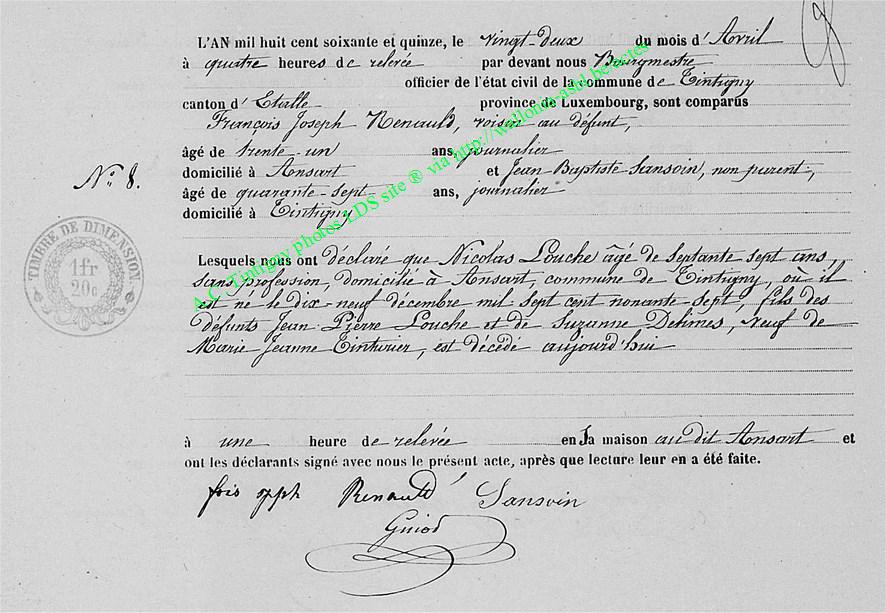 L'AN mil huit cent soixante et quinze, le vingt-deux du mois d'Avril
à quatre heures de relevée par devant nous Bourgmestre
officier de l'état civil de la commune de Tintigny
canton d'Etalle province de Luxembourg, sont comparûs
François Joseph Renauld, voisin au défunt,
âgé de trente-un ans, journalier
domicilié à Ansart et Jean Baptiste Sansoin, non parent,
N° 8.
âgé de quarante-sept ans, journalier
domicilié à Tintigny
Lesquels nous ont déclaré que Nicolas Louche âgé de septante sept ans,
sans profession, domicilié à Ansart, commune de Tintigny, où il
est né le dix-neuf décembre mil sept cent nonante-sept, fils des
défunts Jean-Pierre Louche et de Suzanne Delimes, veuf de
Marie Jeanne Tinturier, est décédé aujourd'hui
à une heure de relevée en la maison au dit Ansart et
ont les déclarants signé avec nous le présent acte, après que lecture leur en a été faite.
fois Renauld Sansoin
Guiot
TIMBRE DE DIMENSION
1fr
20c
A.C. Tintigny photos LDS site ® via http://wallonia-asbl.be/actes